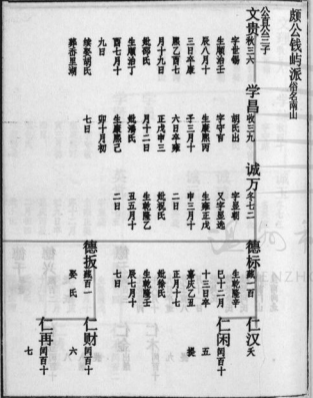 颇公钱屿派俗名南山
公言公三子
文贵 秋三六
字世锡
生顺治壬
辰八月十
三日卒康
熙乙酉七
月十九日
妣邵氏
生顺治丁
酉七月十
九日
续娶胡氏
葬岙里湖
学昌 收三九
胡氏出
字守官
生康熙丙
子三月十
六日卒雍
正戊申三
月十二日
妣潘氏
生康熙己
卯十月初
七日
诚万 冬七二
字显朝
又字显逸
生雍正戊
申三月十
二日
妣祝氏
生乾隆乙
丑五月十
二日
德标 藏一百
生乾隆辛
巳十二月
十三日卒
嘉庆乙丑
正月十七
妣徐氏
生乾隆壬
辰七月十
七日
德扳 藏百一
娶 氏
仁汉 夭
仁闲 闰百十
五
仁财 闰百十
六
仁再 闰百十
七